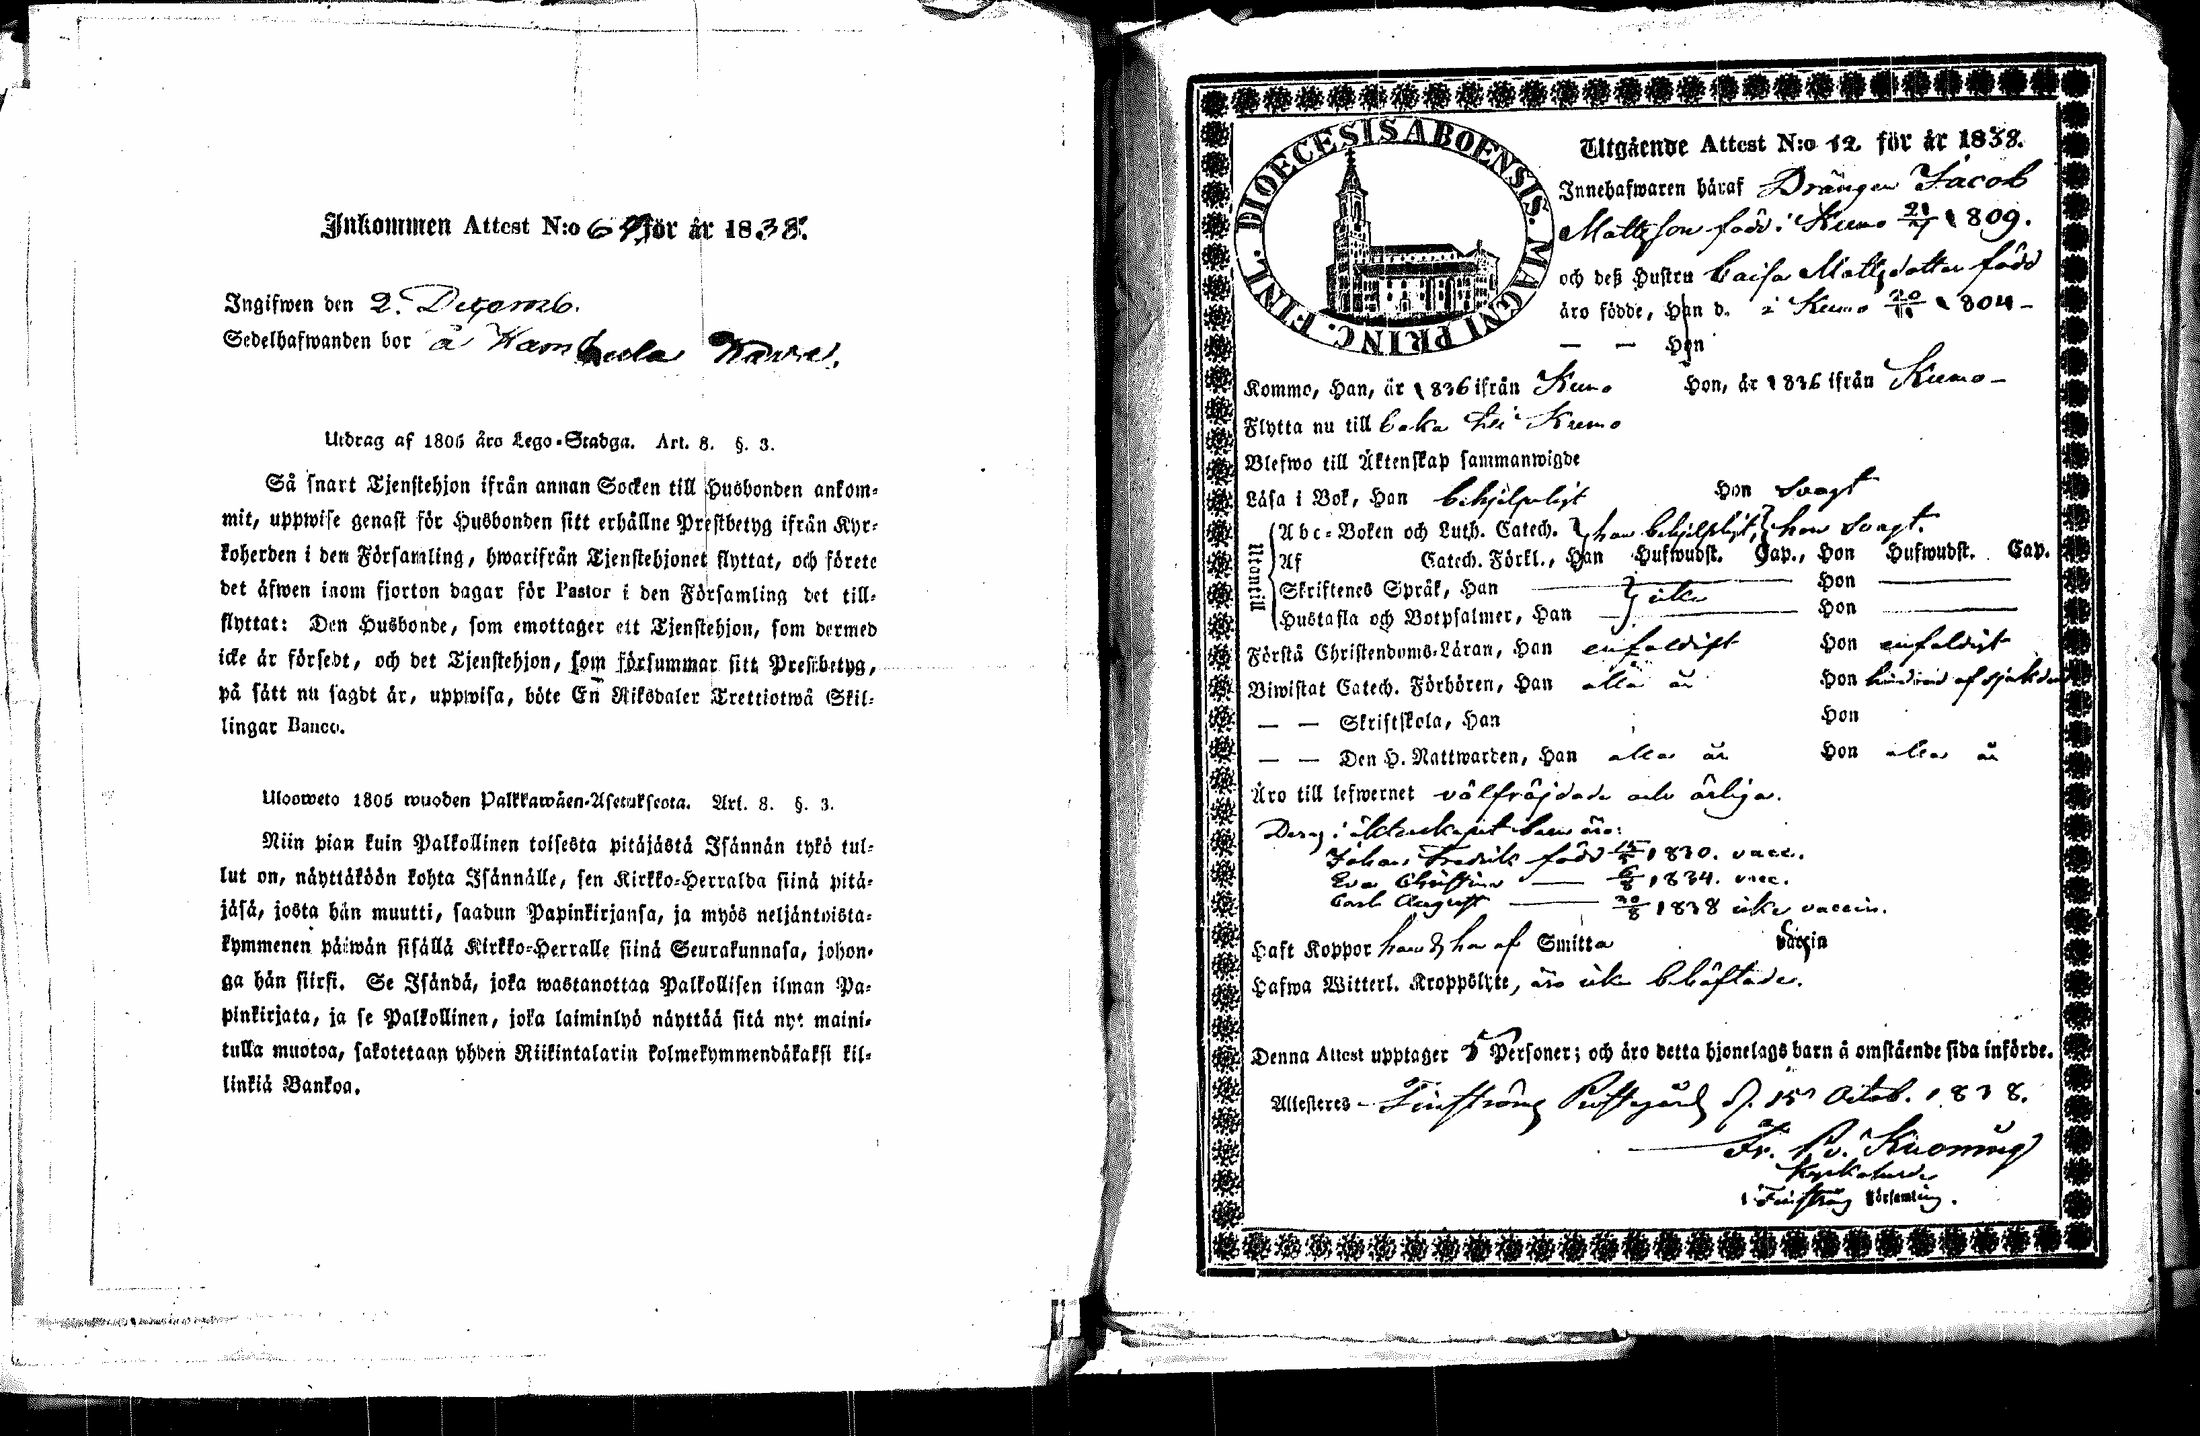 Inkommen Attest N:o 64 för år 1838.
Ingifwen den 2. Decemb.
Sedelhafwanden bor å
Utdrag af 1805 års Lego-Stadga. Art. 8. §. 3.
Så snart Tjenstehjon ifrån annan Socken till Husbonden ankom-
mit, uppwise genast för Husbonden sitt erhållne Prestbetyg ifrån Kyr-
koherden i den Församling, hwarifrån Tjenstehjonet flyttat, och förete
det äfwen inom fjorton dagar för Pastor i den Församling det till-
flyttat: Den Husbonde, som emottager ett Tjenstehjon, som dermed
icke är försedt, och det Tjenstehjon, som försummar sitt Prestbetyg,
på sätt nu sagdt är, uppwisa, böte En Riksdaler Trettiotwå Skil-
lingar Banco.
Ulosweto 1805 wuoden Palkkawäen-Asetuksesta. Art. 8. §. 3.
Niin pian kuin Palkollinen toisesta pitäjästä Isännän tykö tul-
lut on, näyttäköön kohta Isännälle, sen Kirkko-Herralda siinä pitä-
jäsä, josta hän muutti, saadun Papinkirjansa, ja myös neljäntoista-
kymmenen päiwän sisällä Kirkko-Herralle siinä Seurakunnasa, johon-
ga hän siirsi. Se Isändä, joka wastanottaa Palkollisen ilman Pa-
pinkirjata, ja se Palkollinen, joka laiminlyö näyttää sitä nyt maini-
tulla muotoa, sakotetaan yhden Riikintalarin kolmekymmendäkaksi kil-
linkiä Bankoa.
DIOECESIS ABOENSIS. MAGNI PRINC. FINL.
Utgående Attest N:o 12 för år 1838.
Innehafwaren häraf Drängen Jacob
Mattsson född i Kumo 21/7 1809.
och deß Hustru Caisa Mattsdotter född
äro födde, Han d. i Kumo 1804
— — Hon
Kommo, Han, år 1836 ifrån Kumo Hon, år 1836 ifrån Kumo
Flytta nu till baka till Kumo
Blefwo till Äktenskap sammanwigde
Läsa i Bok, Han behjelpligt Hon svagt
Utantill
Abc-Boken och Luth. Catech. han behjelpligt, hon svagt.
Af Catech. Förkl., Han Hufwudst. Cap., Hon Hufwudst. Cap.
Skriftenes Språk, Han Hon
icke
Hustafla och Botpsalmer, Han Hon
Förstå Christendoms-Läran, Han enfaldigt Hon enfaldigt
Biwistat Catech. Förhören, Han alla år Hon hindrad af sjukdom
— — Skriftskola, Han Hon
— — Den H. Nattwarden, Han alla år Hon alla år
Äro till lefwernet välfräjdade och ärliga.
Deras i äktenskapet barn äro:
Johan Fredrik född 1830. vacc.
Eva Christina — 6/8 1834. vacc.
Carl August — 20/8 1838 icke vaccin.
Haft Koppor han & hon af Smitta Vaccin
Hafwa Witterl. Kroppslyte, äro icke behäftade.
Denna Attest upptager 5 Personer; och äro detta hjonelags barn å omstående sida införde.
Attesteres Finström Prostegård d. 15 Octob. 1838.
Kyrkoherde
i Finström Församling.